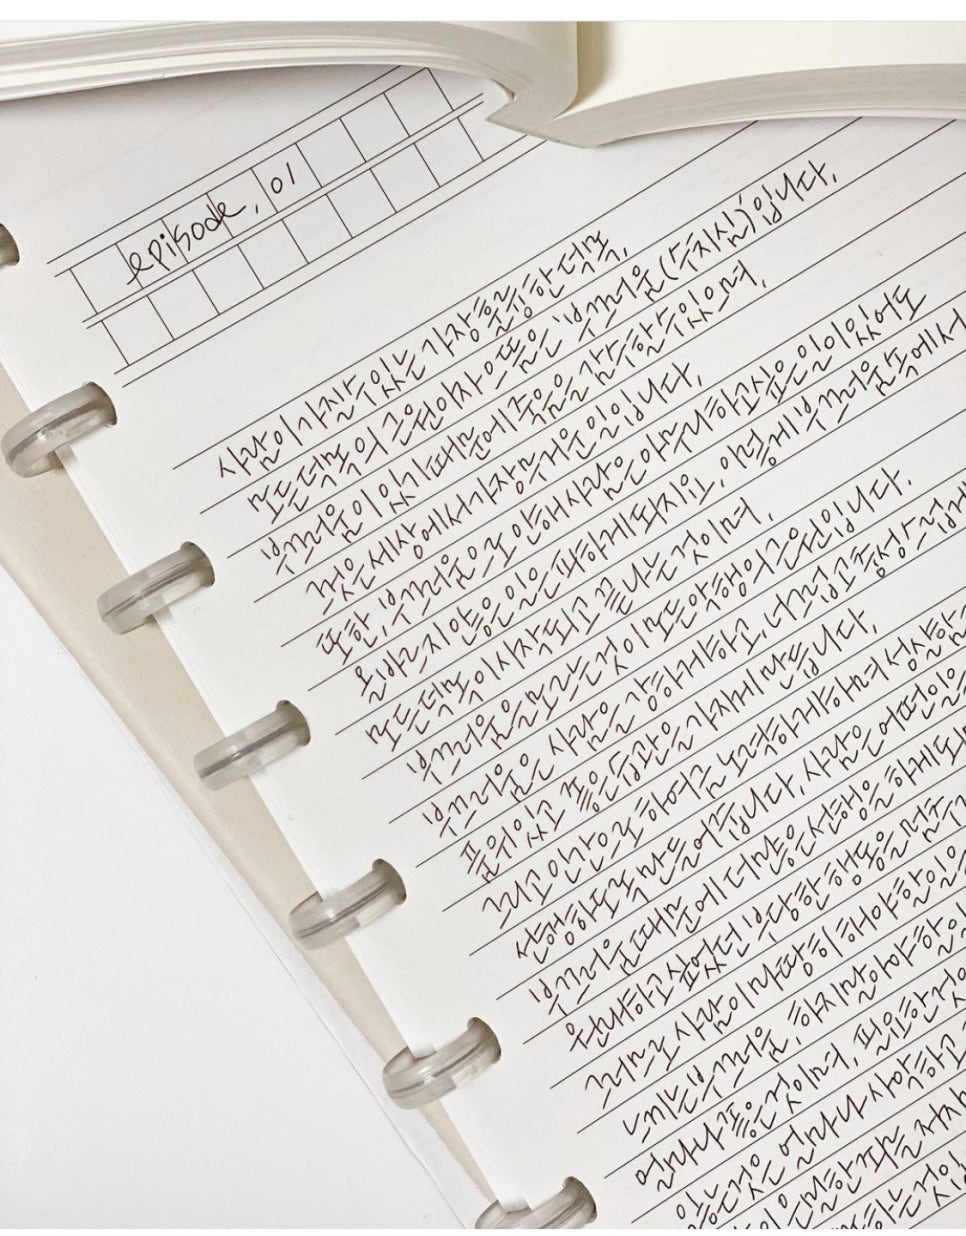 episode, 01
사람이 가질 수 있는 가장 훌륭한 덕목,
모든 덕목의 근원이자 으뜸은 '부끄러움(수치심)'입니다.
부끄러움이 있기 때문에 죽음을 감수할 수 있으며,
그것은 세상에서 가장 무거운 일입니다.
또한, 부끄러움으로 인해 사람은 아무리 하고싶은 일이 있어도
올바르지 않은 일은 피하게 되지요, 이렇게 부끄러움 속에서
모든 덕목이 시작되고 끝나는 것이며,
부끄러움을 모르는 것이 모든 악행의 근원입니다.
부끄러움은 사람을 강하게 하고, 너그럽고 충성스럽게
품위있고 좋은 습관을 가지게 만듭니다.
그리고 인간으로 하여금 노력하게 하며 성실함
선행하도록 만들어 줍니다. 사람은 어떤 일을
부끄러움 때문에 더 많은 선행을 하게 되
원하고 싶었던 부당한 행동을 멈추
그러므로 사람이 마땅히 해야 할 일
느끼는 부끄러움, 하지 말아야 할
얼마나 좋은 것이며, 필요한
않는 것은 얼마나 사악하고